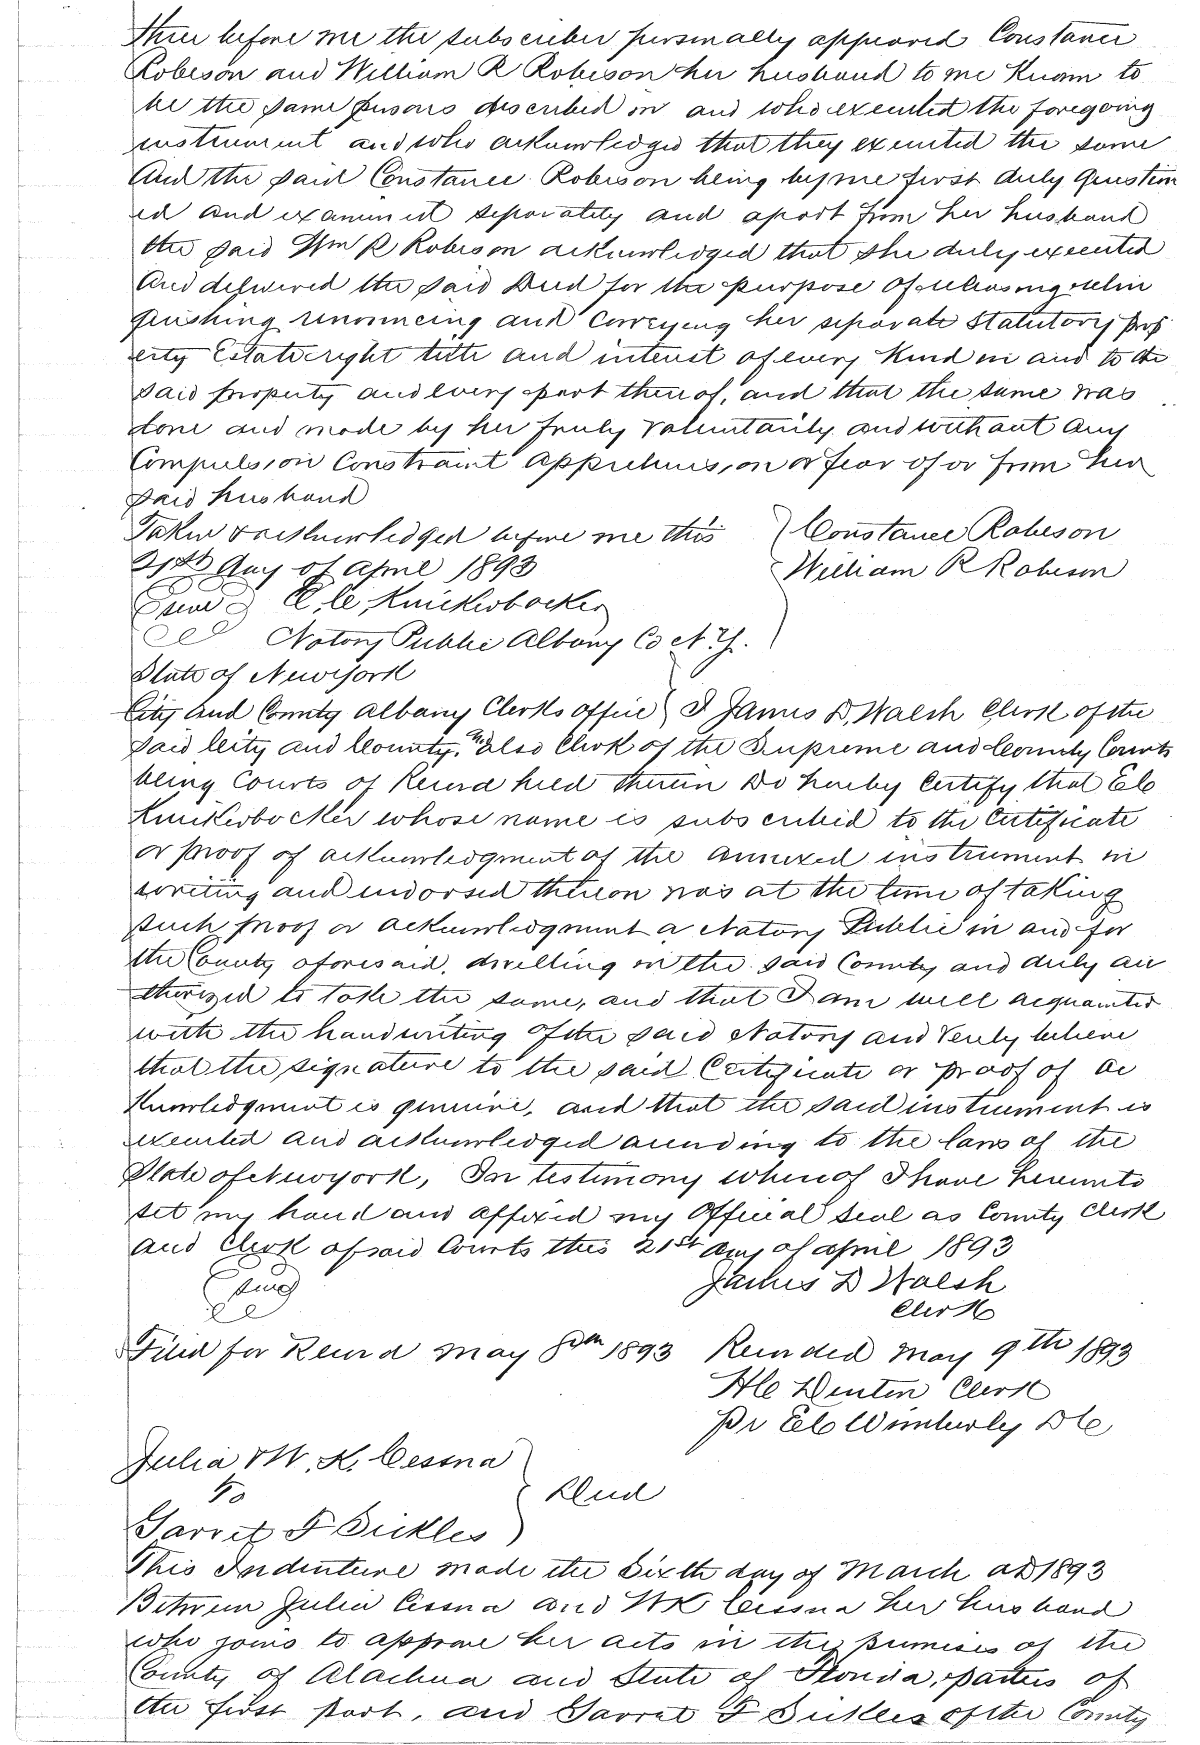 three before me the subscriber personally appeared Constance
Robeson and William R Robeson her husband to me Known to
be the same persons described in and who executed the foregoing
instrument and who acknowledged that they executed the same
And the said Constance Robeson being by me first duly question
ed and examined separately and apart from her husband
the said Wm R Robeson acknowledged that she duly executed
And delivered the said Deed for the purpose of releasing relin
quishing renouncing and Conveying her separate Statutory prop
erty Estate right title and interest of every Kind in and to the
said property and every part thereof, and that the same was
done and made by her freely voluntarily and without any
Compulsion Constraint apprehension or fear of or from her
said husband
Taken & acknowledged before me this } Constance Robeson
21st day of April 1893 William R Robeson
Seal E. C. Knickerbocker
Notary Public Albany Co N.Y.
State of New York
City and County Albany Clerks office } I James D. Walsh Clerk of the
said City and County, & also Clerk of the Supreme and County Courts
being Courts of Record held therein Do hereby Certify that E C
Knickerbocker whose name is subscribed to the Certificate
or proof of acknowledgment of the annexed instrument in
writing and endorsed thereon was at the time of taking
such proof or acknowledgment a Notary Public in and for
the County aforesaid, dwelling in the said County and duly au
thorized to take the same, and that I am well acquainted
with the handwriting of the said Notary and Verily believe
that the signature to the said Certificate or proof of ac
Knowledgment is genuine, and that the said instrument is
executed and acknowledged according to the laws of the
State of New york, In testimony whereof I have hereunto
set my hand and affixed my Official Seal as County Clerk
and Clerk of said Courts this 21st day of april 1893
Seal James D Walsh
Clerk
Filed for Record May 8th 1893 Recorded May 9th 1893
H C Denton Clerk
Pr E C Wimberly D C
Julia & W. K. Cessna
to } Deed
Garret F Sickles
This Indenture made the Sixth day of March AD 1893
Between Julia Cessna and W K Cessna her husband
who joins to approve her acts in the premises of the
County of Alachua and State of Florida, parties of
the first part, and Garret F Sickles of the County